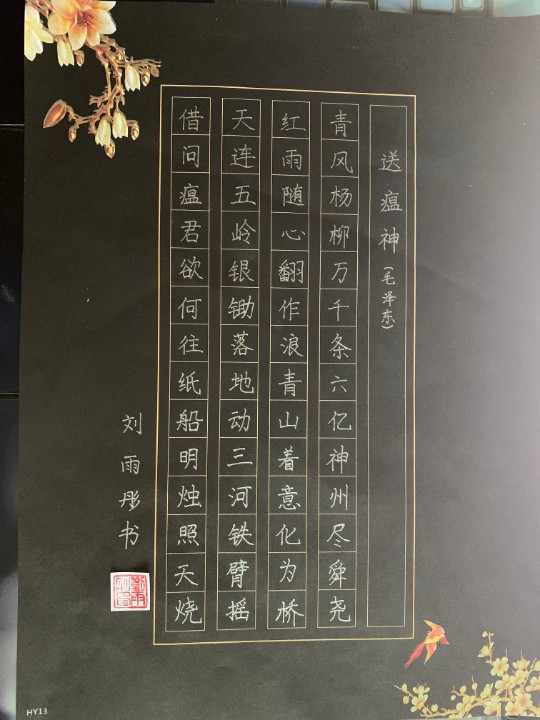 送瘟神(毛泽东)
青风杨柳万千条六亿神州尽舜尧
红雨随心翻作浪青山着意化为桥
天连五岭银锄落地动三河铁臂摇
借问瘟君欲何往纸船明烛照天烧
刘雨彤书
HY13